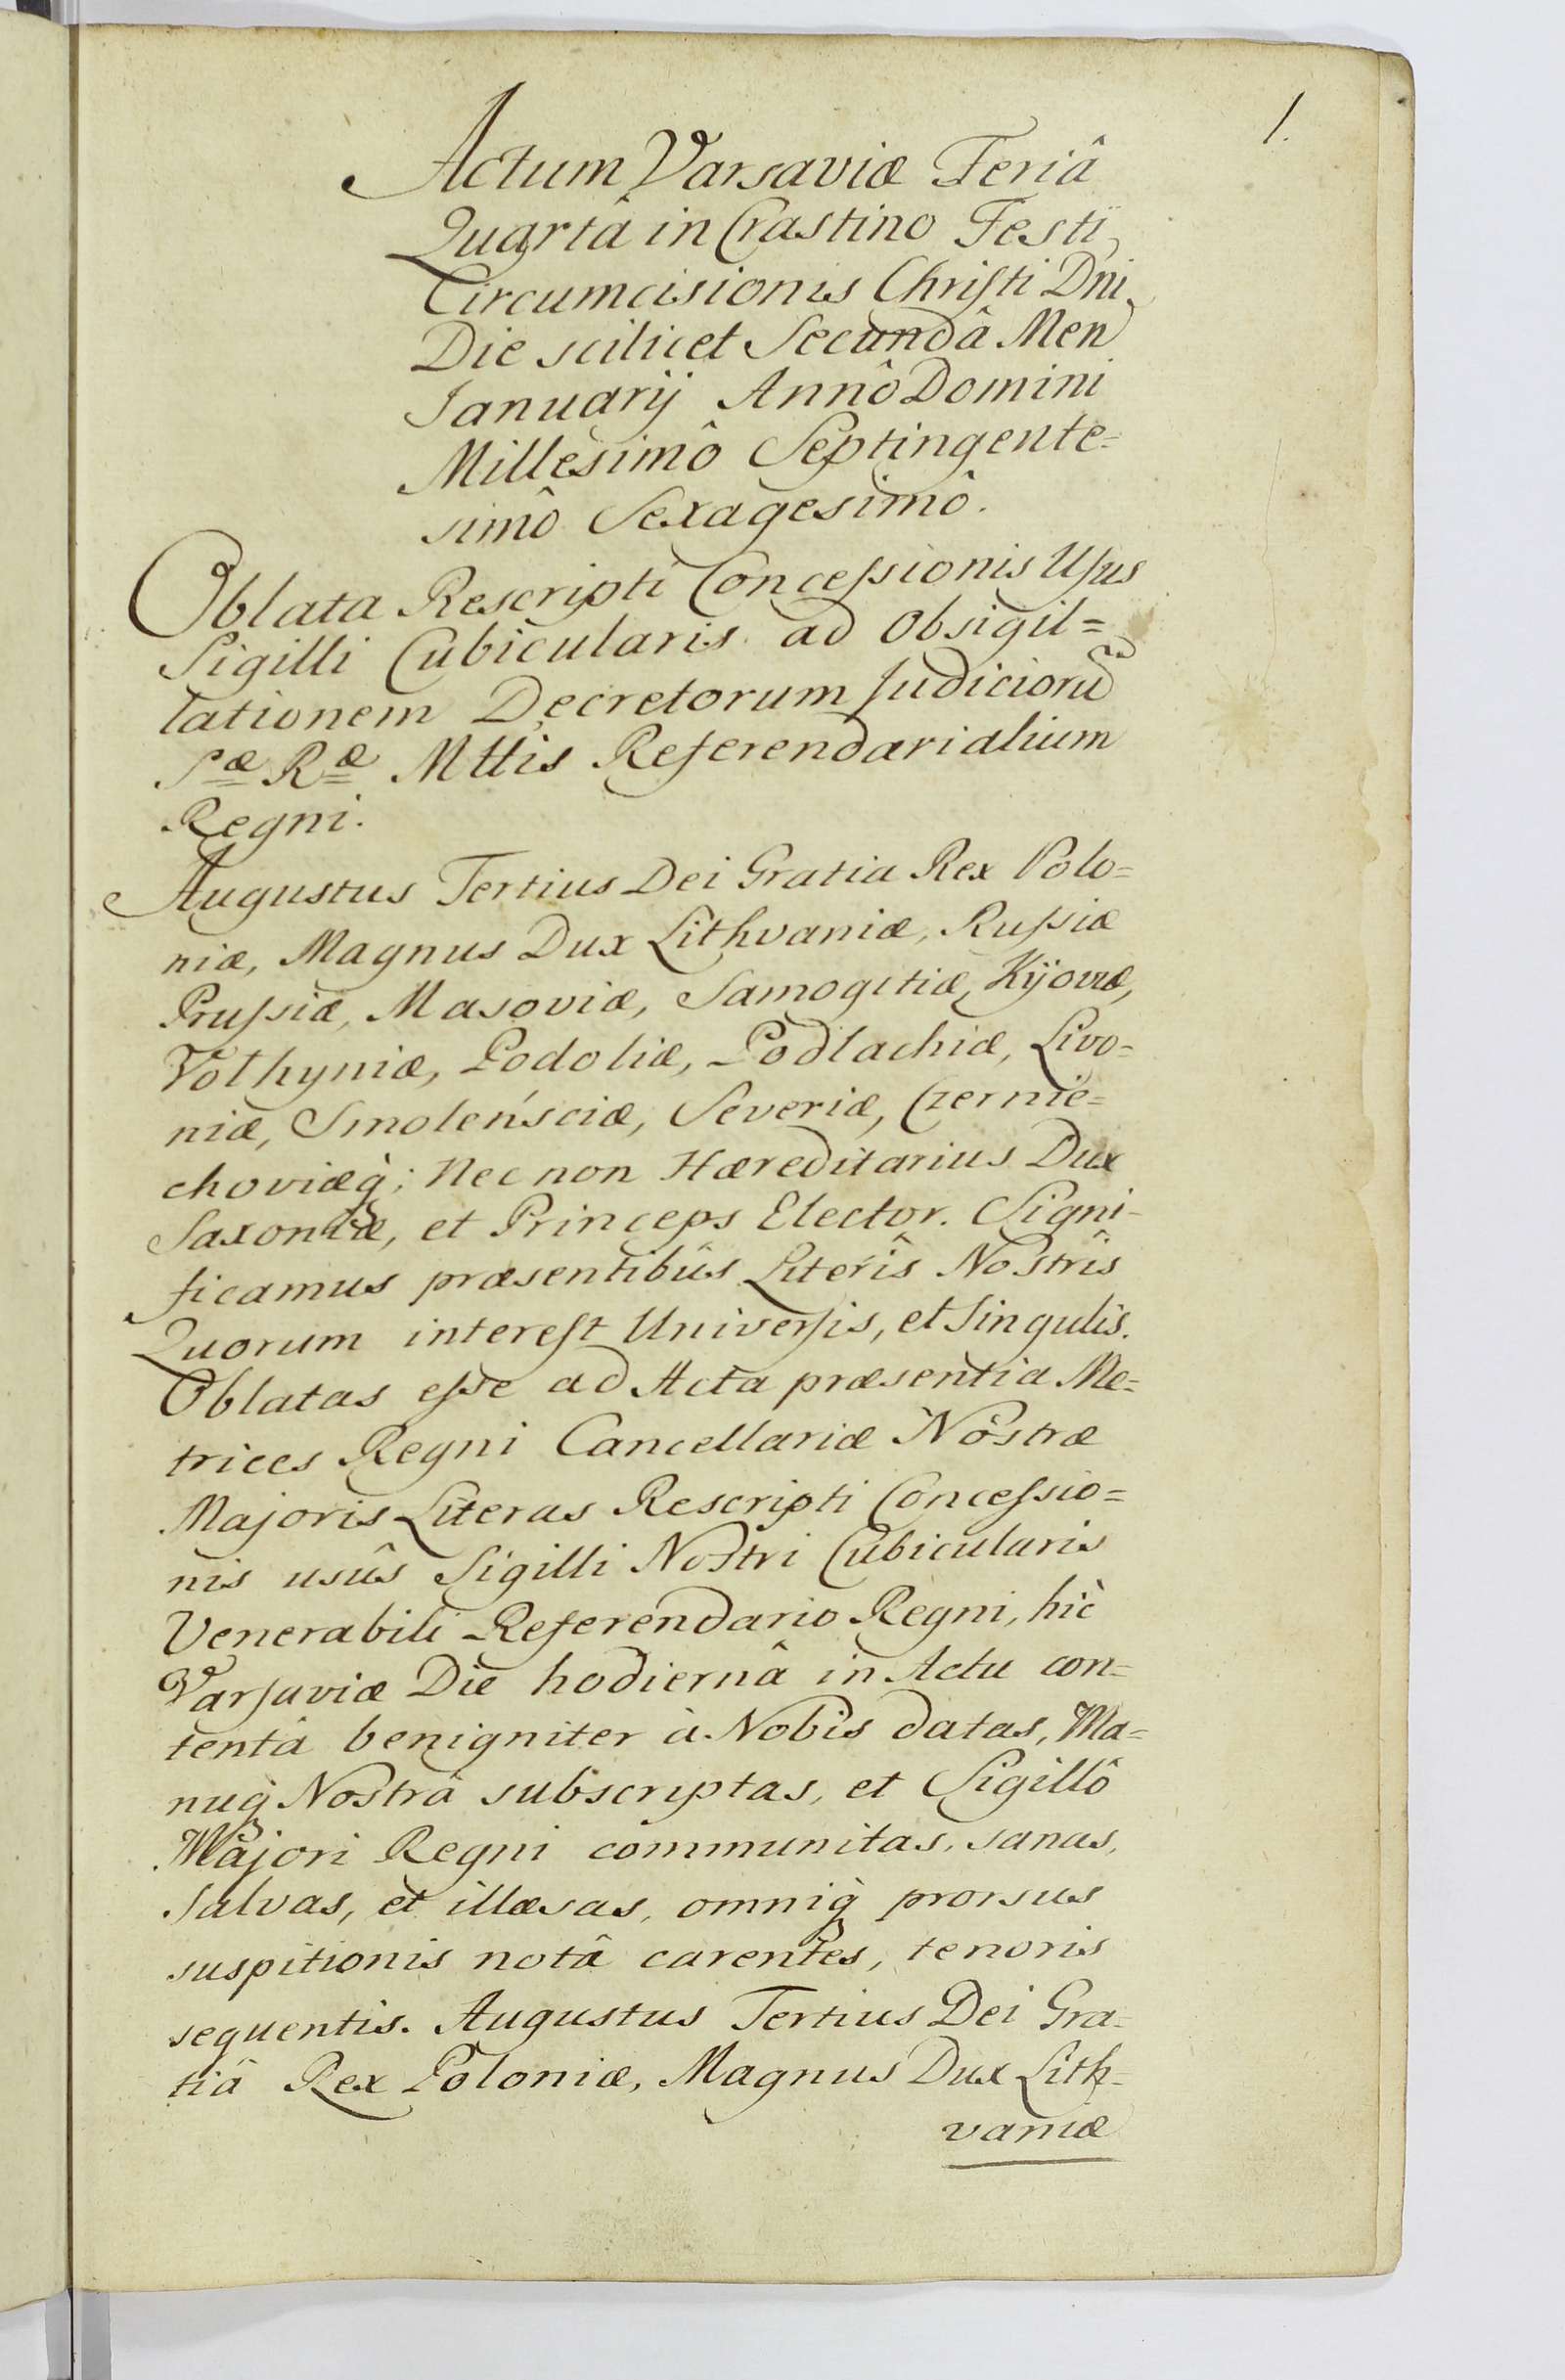 1.
Actum Varsaviæ Feriâ
Quartâ in Crastino Festi
Circumcisionis Christi Dni
Die scilicet Secundâ Men
Januarij Annô Domini
Millesimô Septingente=
simô Sexagesimô.
Oblata Rescripti Concessionis Usus
Sigilli Cubicularis ad Obsigil=
lationem Decretorum Judiciorũ
Sæ Ræ Mttis Referendarialium
Regni.
Augustus Tertius Dei Gratia Rex Polo=
niæ, Magnus Dux Lithvaniæ, Russiæ
Prussiæ, Masoviæ, Samogitiæ, Kijoviæ,
Volhyniæ, Podoliæ, Podlachiæ, Livo=
niæ, Smolénsciæ, Severiæ, Czernie=
choviæq́; Nec non Hæreditarius Dux
Saxoniæ, et Princeps Elector. Signi-
ficamus præsentibûs Literîs Nostrîs
Quorum interest Universis, et Singulis.
Oblatas esse ad Acta præsentia Me=
trices Regni Cancellariæ Nostræ
Majoris Literas Rescripti Concessio=
nis usûs Sigilli Nostri Cubicularis
Venerabili Referendario Regni, hìc
Varsaviæ Die hodiernâ in Actu con=
tentâ benigniter à Nobis datas, Ma=
nuq́ Nostrâ subscriptas, et Sigillô
Majori Regni communitas, sanas,
salvas, et illæsas, omniq́ prorsus
suspitionis notâ carentes, tenoris
sequentis. Augustus Tertius Dei Gra=
tiâ Rex Poloniæ, Magnus Dux Lith=
vaniæ